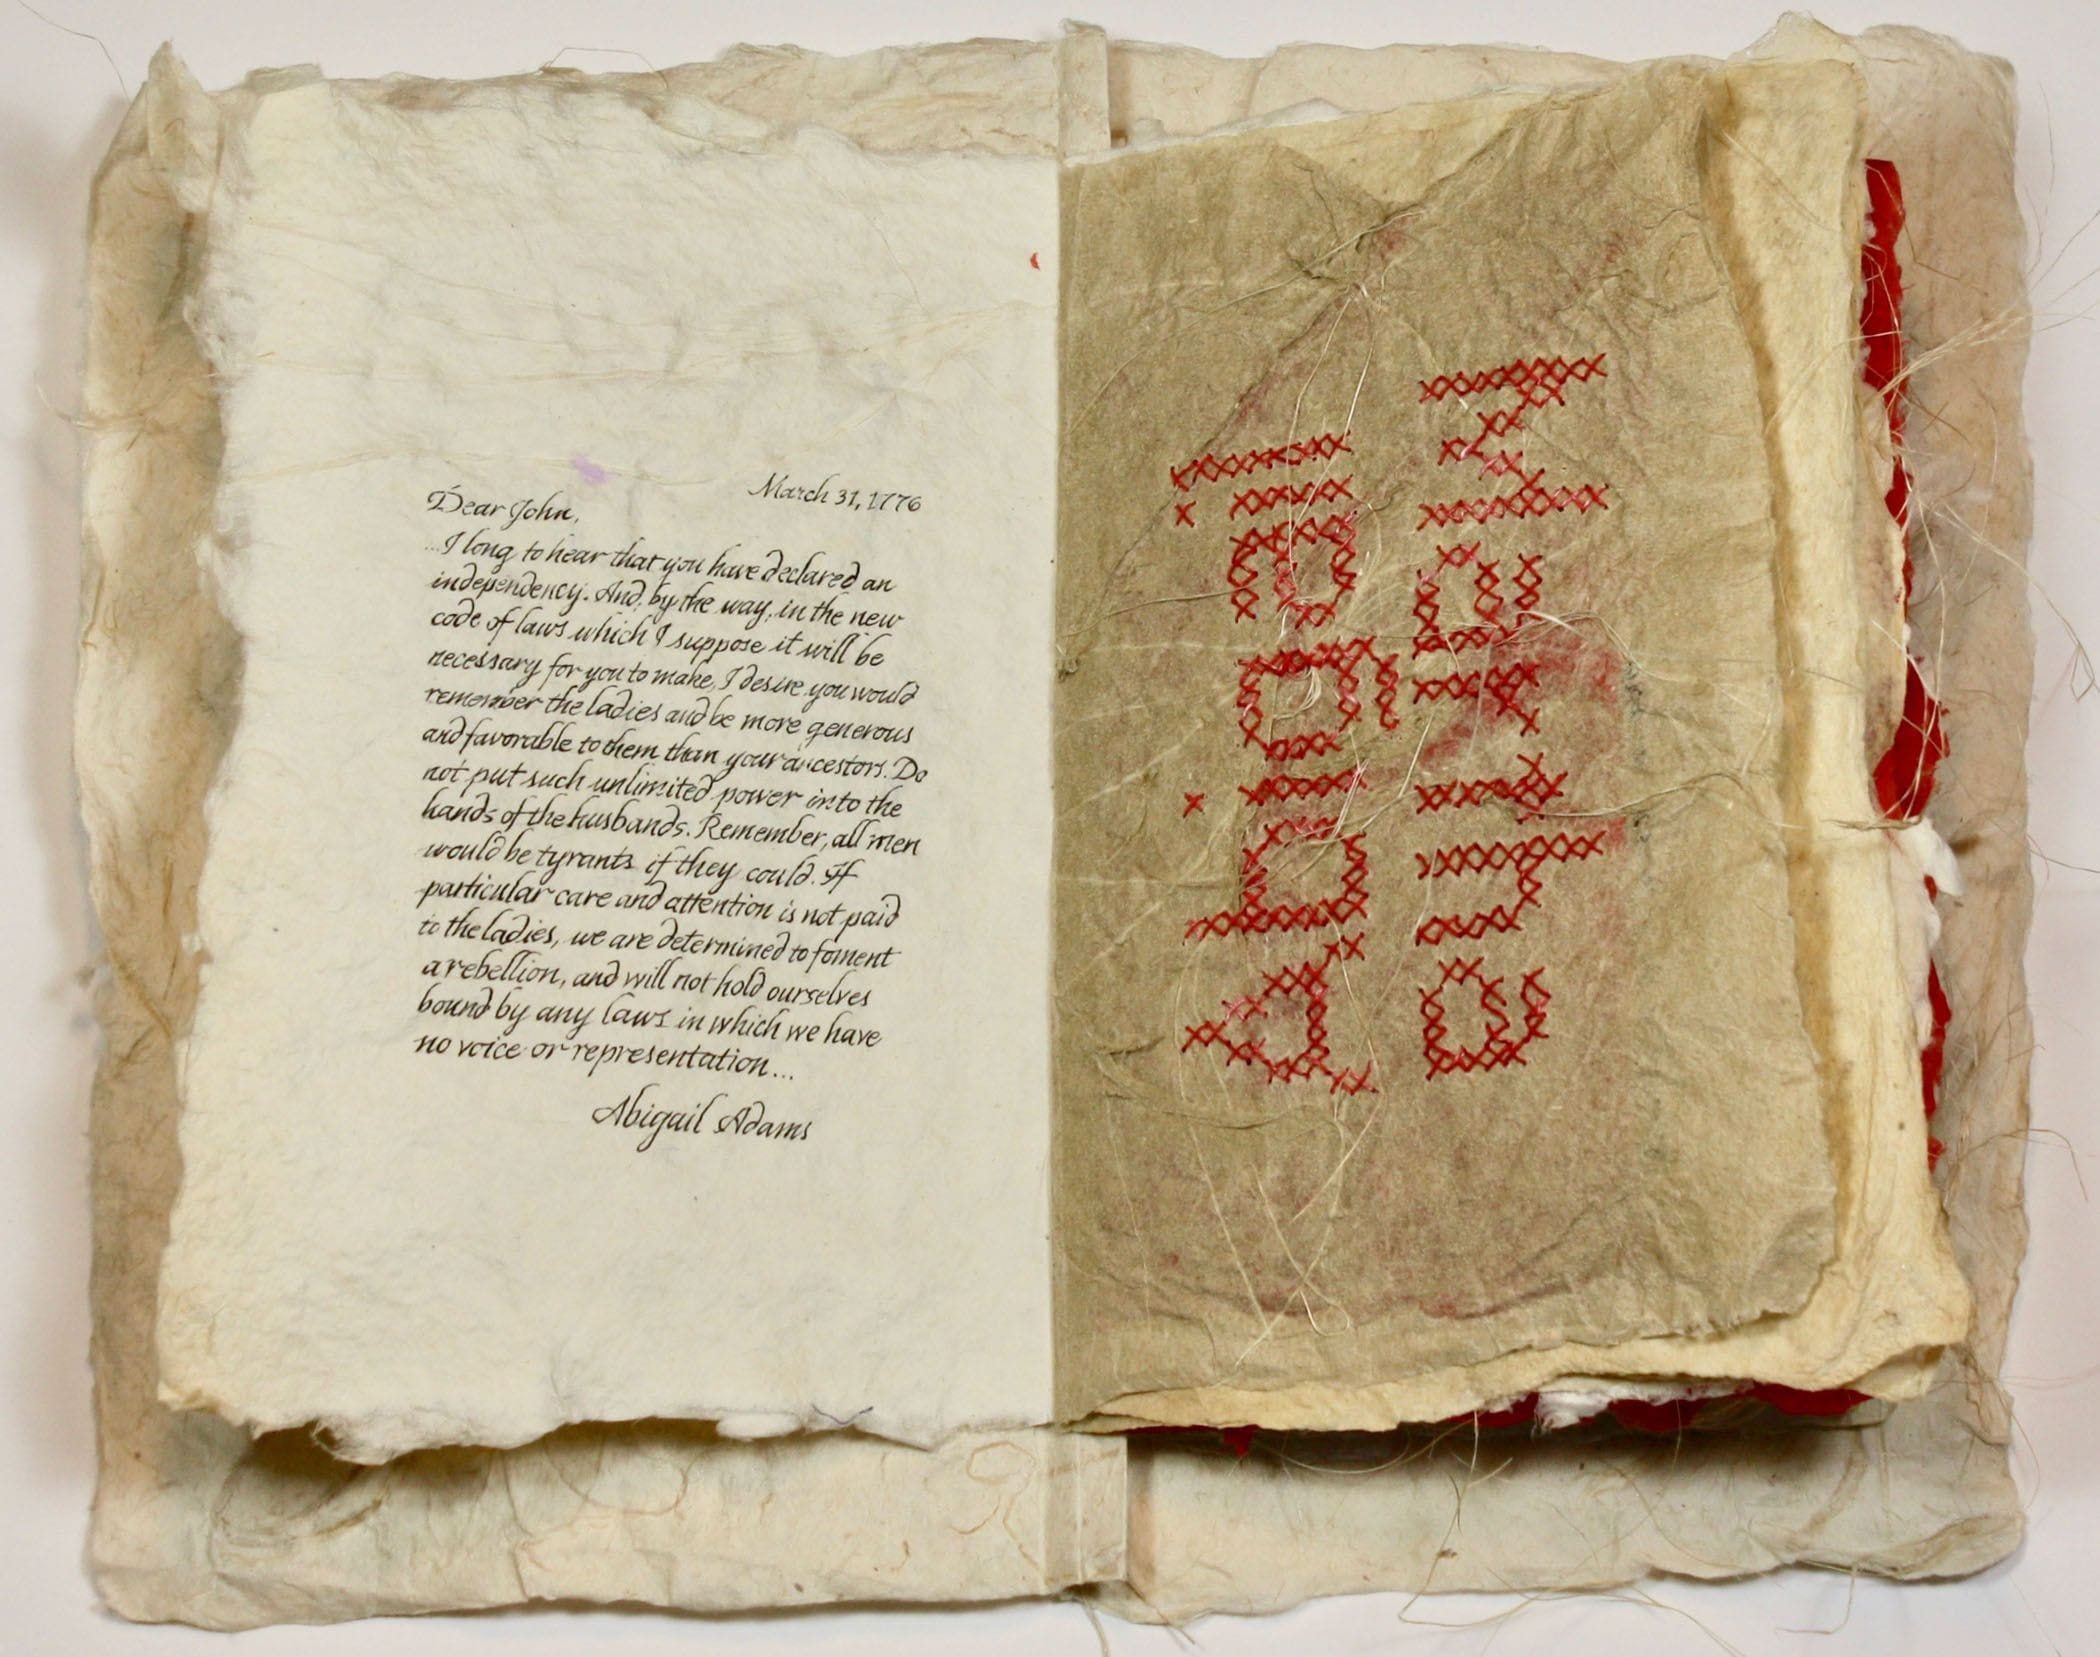 March 31, 1776
Dear John,
...I long to hear that you have declared an
independency. And, by the way, in the new
code of laws which I suppose it will be
necessary for you to make, I desire you would
remember the ladies and be more generous
and favorable to them than your ancestors. Do
not put such unlimited power into the
hands of the husbands. Remember, all men
would be tyrants if they could. If
particular care and attention is not paid
to the ladies, we are determined to foment
a rebellion, and will not hold ourselves
bound by any laws in which we have
no voice or representation...
Abigail Adams
Abigail
Martha